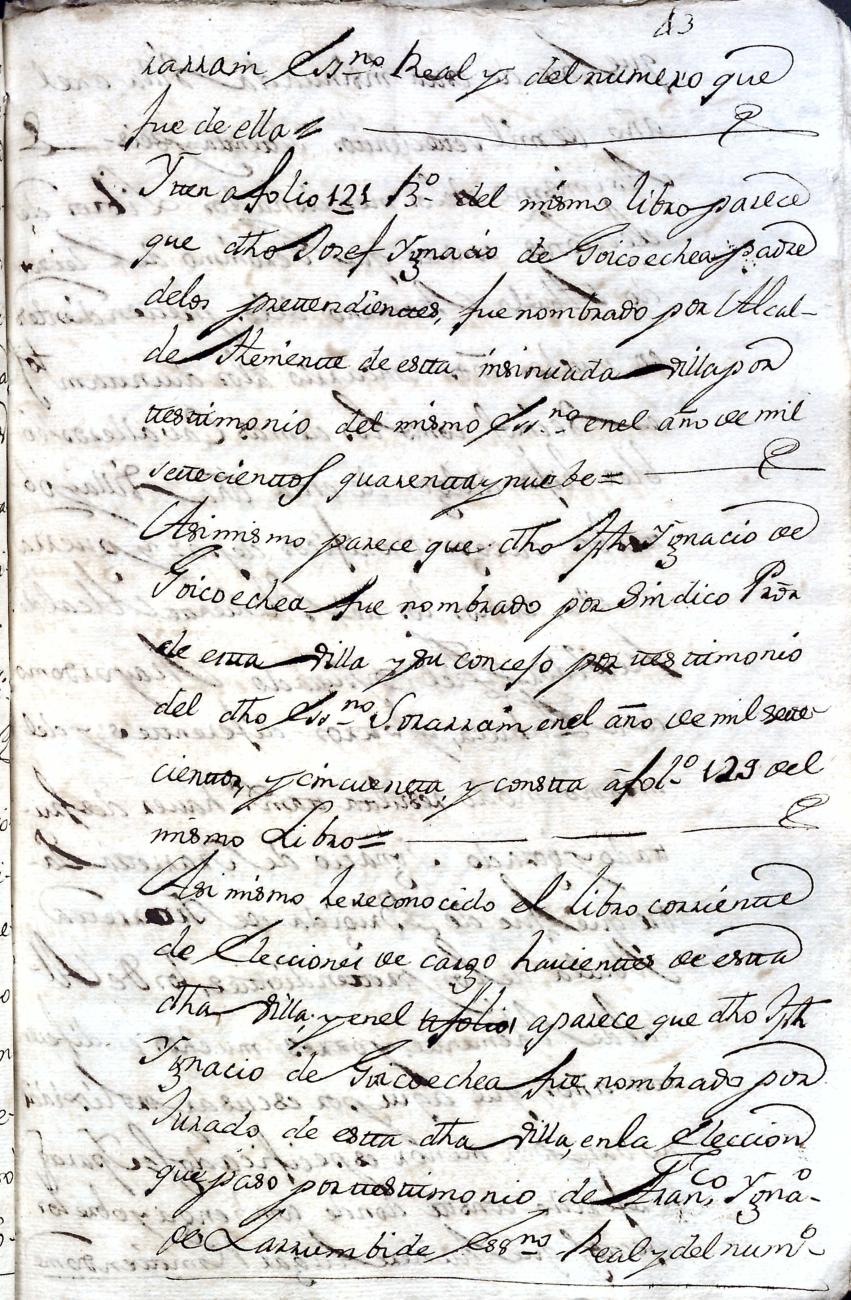 43
rarrain Essno Real y del numero que
fue de ella=
Yten a folio 121 Bo del mismo libro parece
que dho Josef Ygnacio de Goicoechea padre
delos prettendienttes, fue nombrado por Alcal-
de Theniente de estta insinuada villa por
ttesttimonio del mismo Essno en el año de mil
settecienttos quarentta y nuebe=
Asimismo parece que dho Jph Ygnacio de
Goicoechea fue nombrado por Sindico Pror
de estta villa y su concejo por ttesttimonio
del dho Essno Sorarrain en el año de mil sette
cienttos, y cincuentta y constta a folo 129 del
mismo Libro=
Asi mismo he reconocido el libro corrientte
de Elecciones de cargo havienttes de estta
dha villa, y en el folio 1 aparece que dho Jph
Ygnacio de Goicoechea fue nombrado por
Jurado de estta dha villa, en la Eleccion
que paso por ttesttimonio de Franco Ygno
de Larrumbide Essno Real y del numo